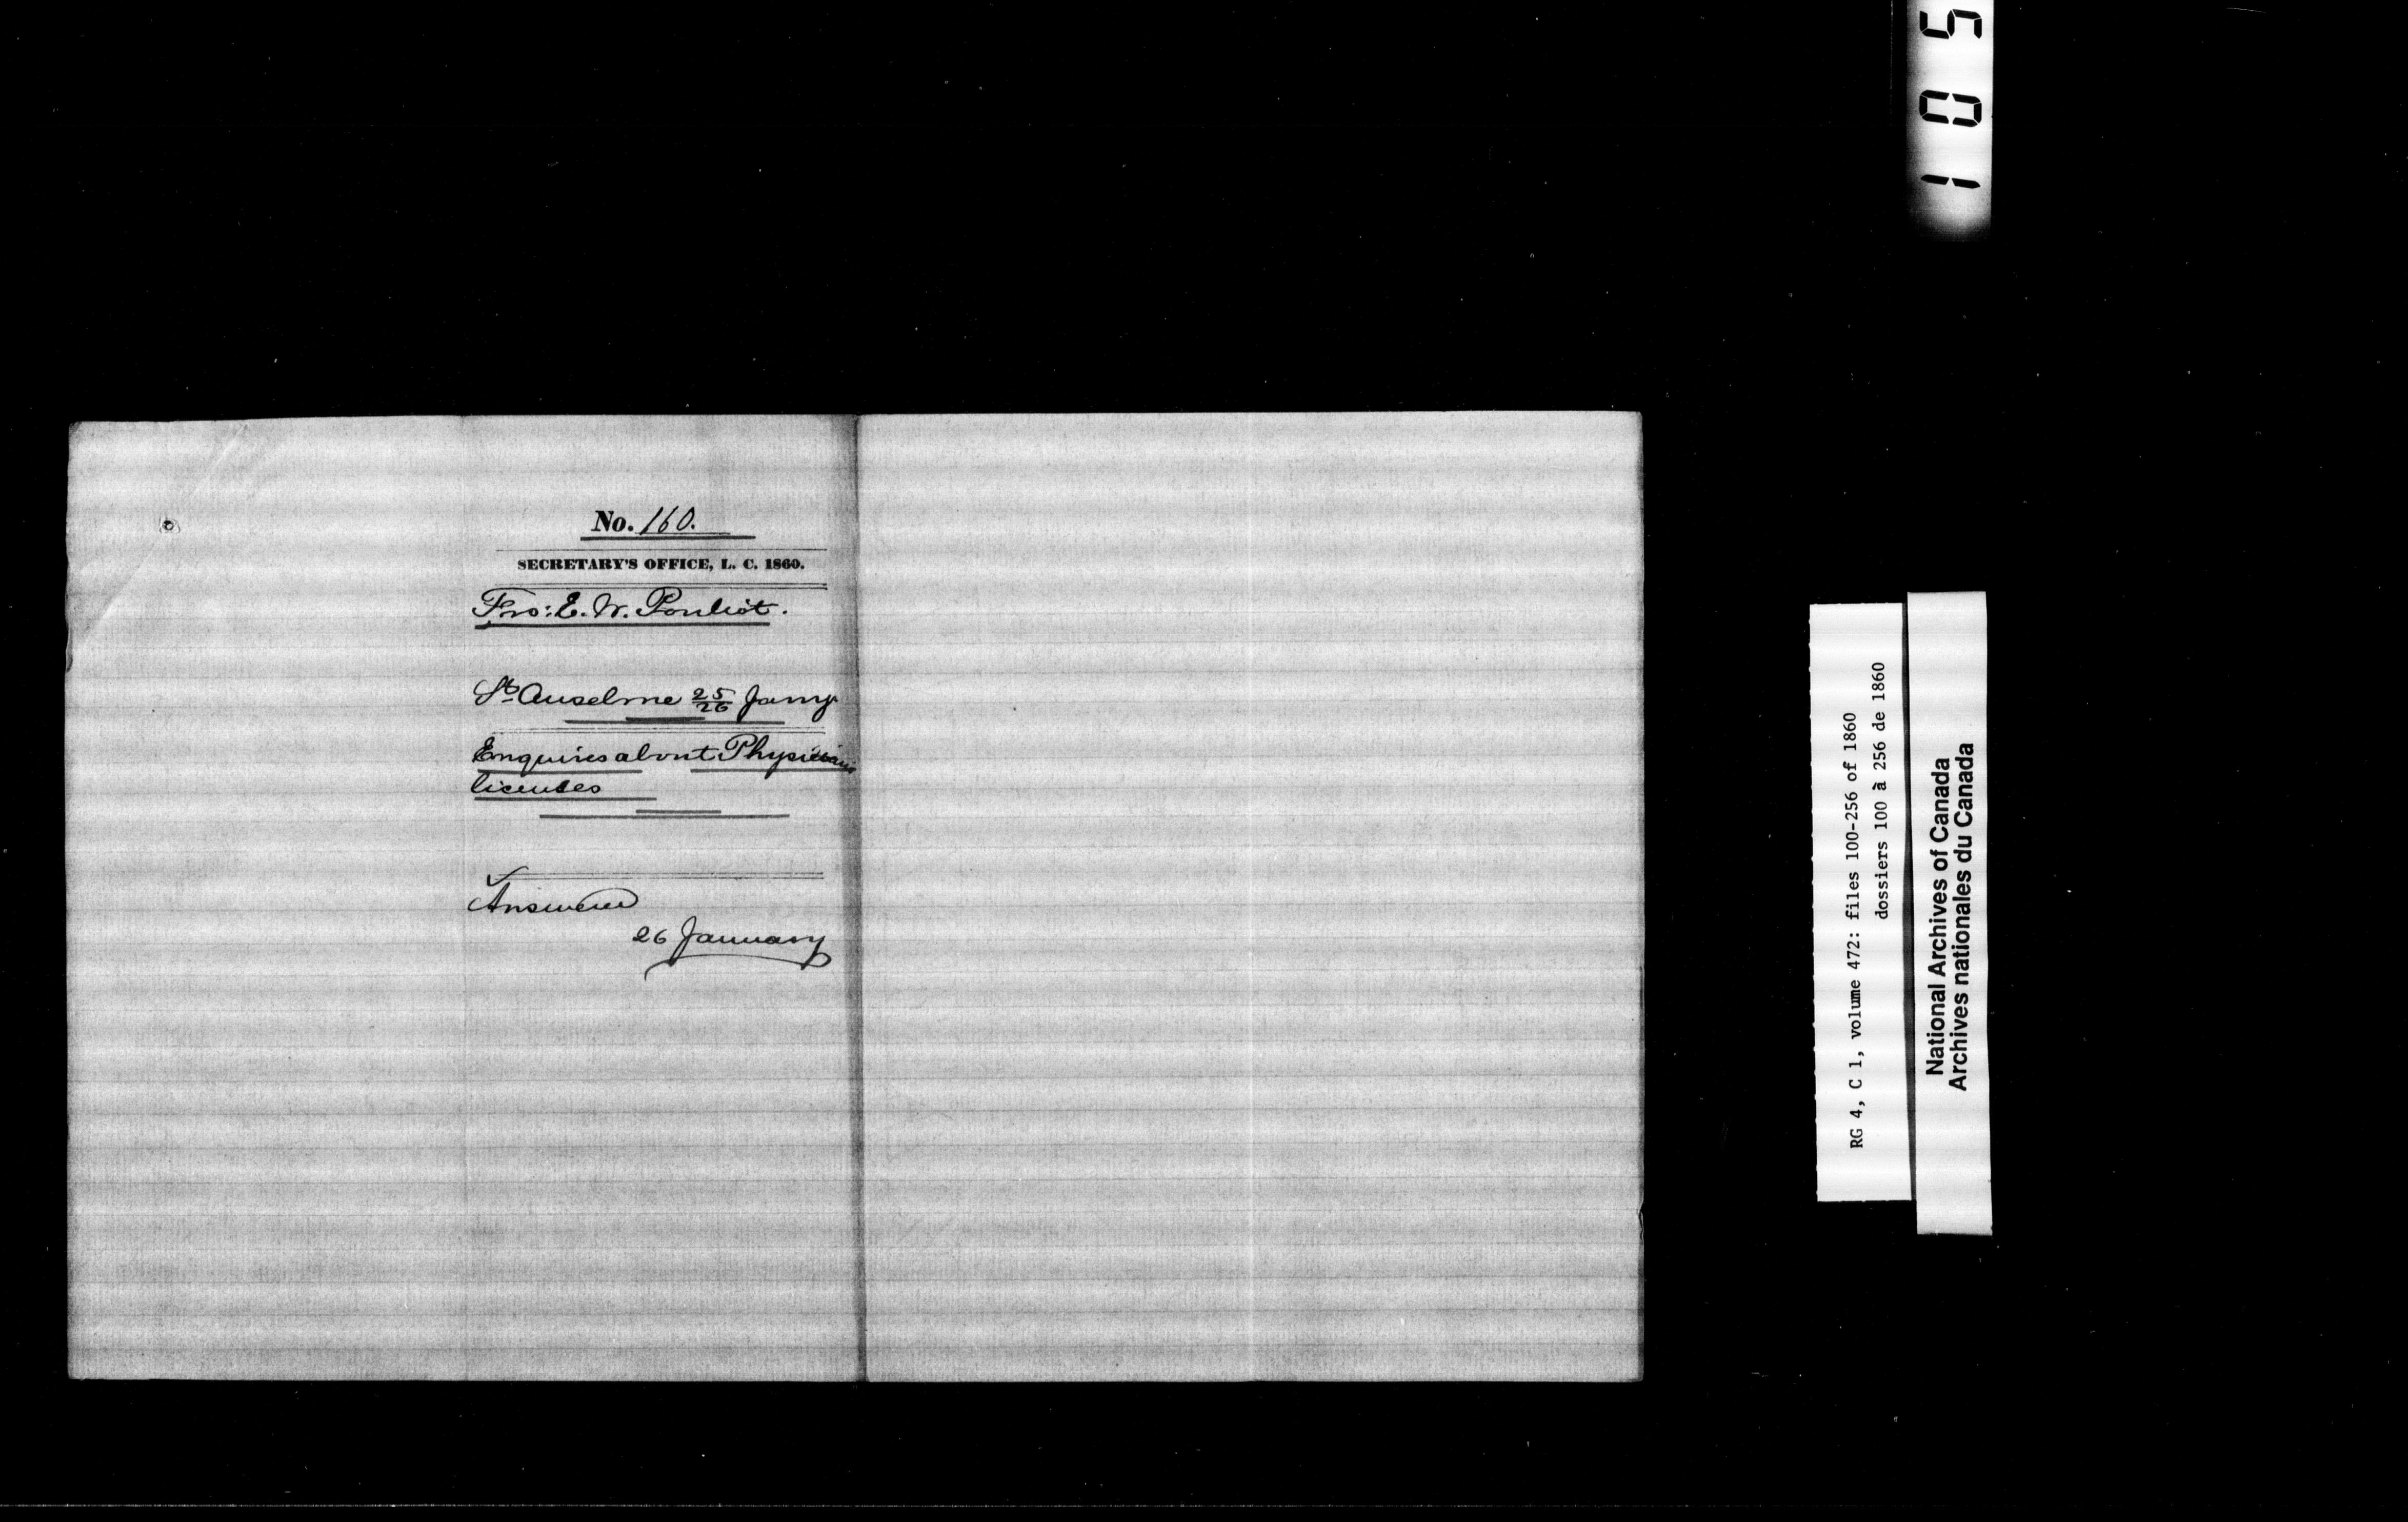 No. 160.
SECRETARY'S OFFICE, L. C. 1860.
Fro: E. W. Pouliot.
St Anselme 25/26 Jany.
Enquires about Physicians
licenses
Answered
26 January
105
RG 4, C 1, volume 472: files 100-256 of 1860
dossiers 100 à 256 de 1860
National Archives of Canada
Archives nationales du Canada